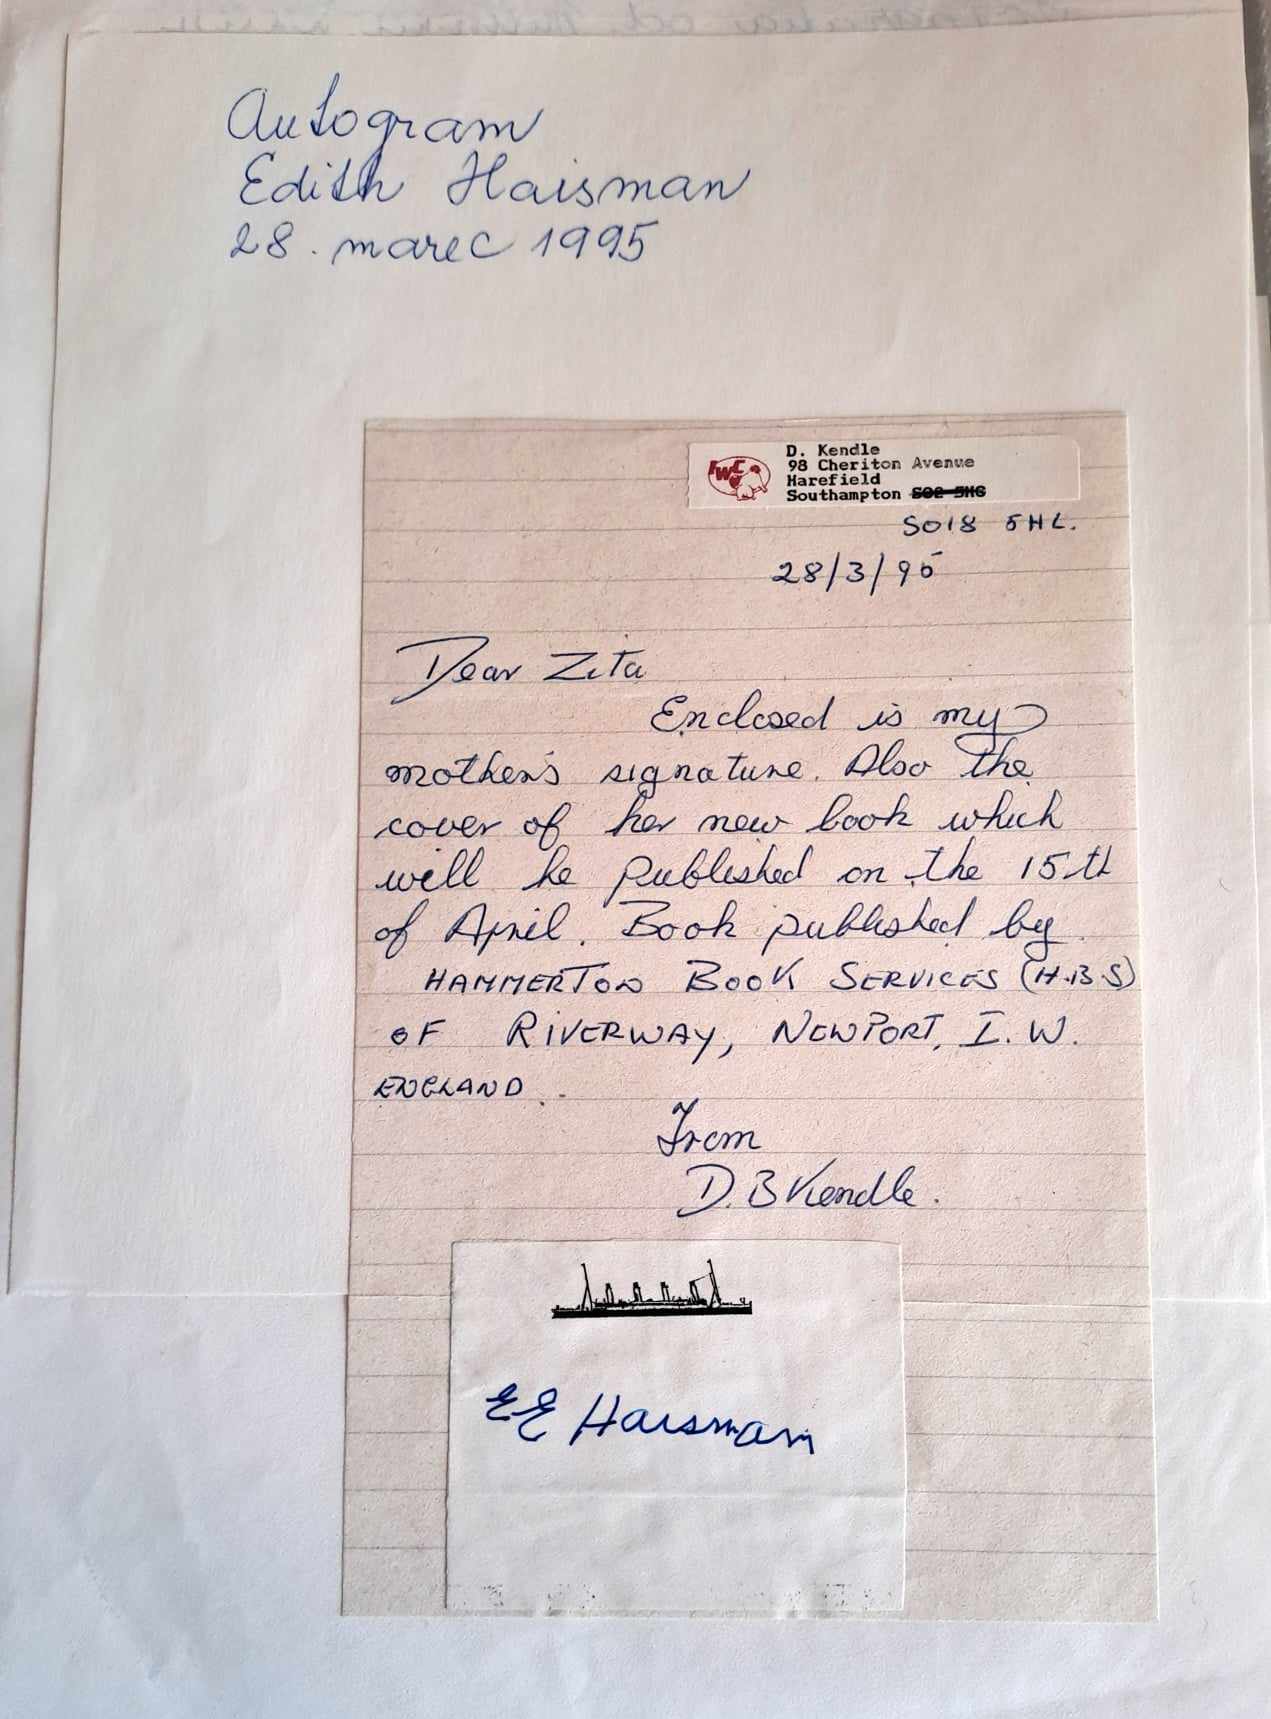 Autogram
Edith Haisman
28. marec 1995
IWC
D. Kendle
98 Cheriton Avenue
Harefield
Southampton SO2 5HG
SO18 5HL.
28/3/95
Dear Zita
Enclosed is my
mother's signature. Also the
cover of her new book which
will be published on the 15th
of April. Book published by
HAMMERTON BOOK SERVICES (H.B.S)
OF RIVERWAY, NEWPORT, I.W.
ENGLAND.
From
D.B Kendle.
EE Haisman